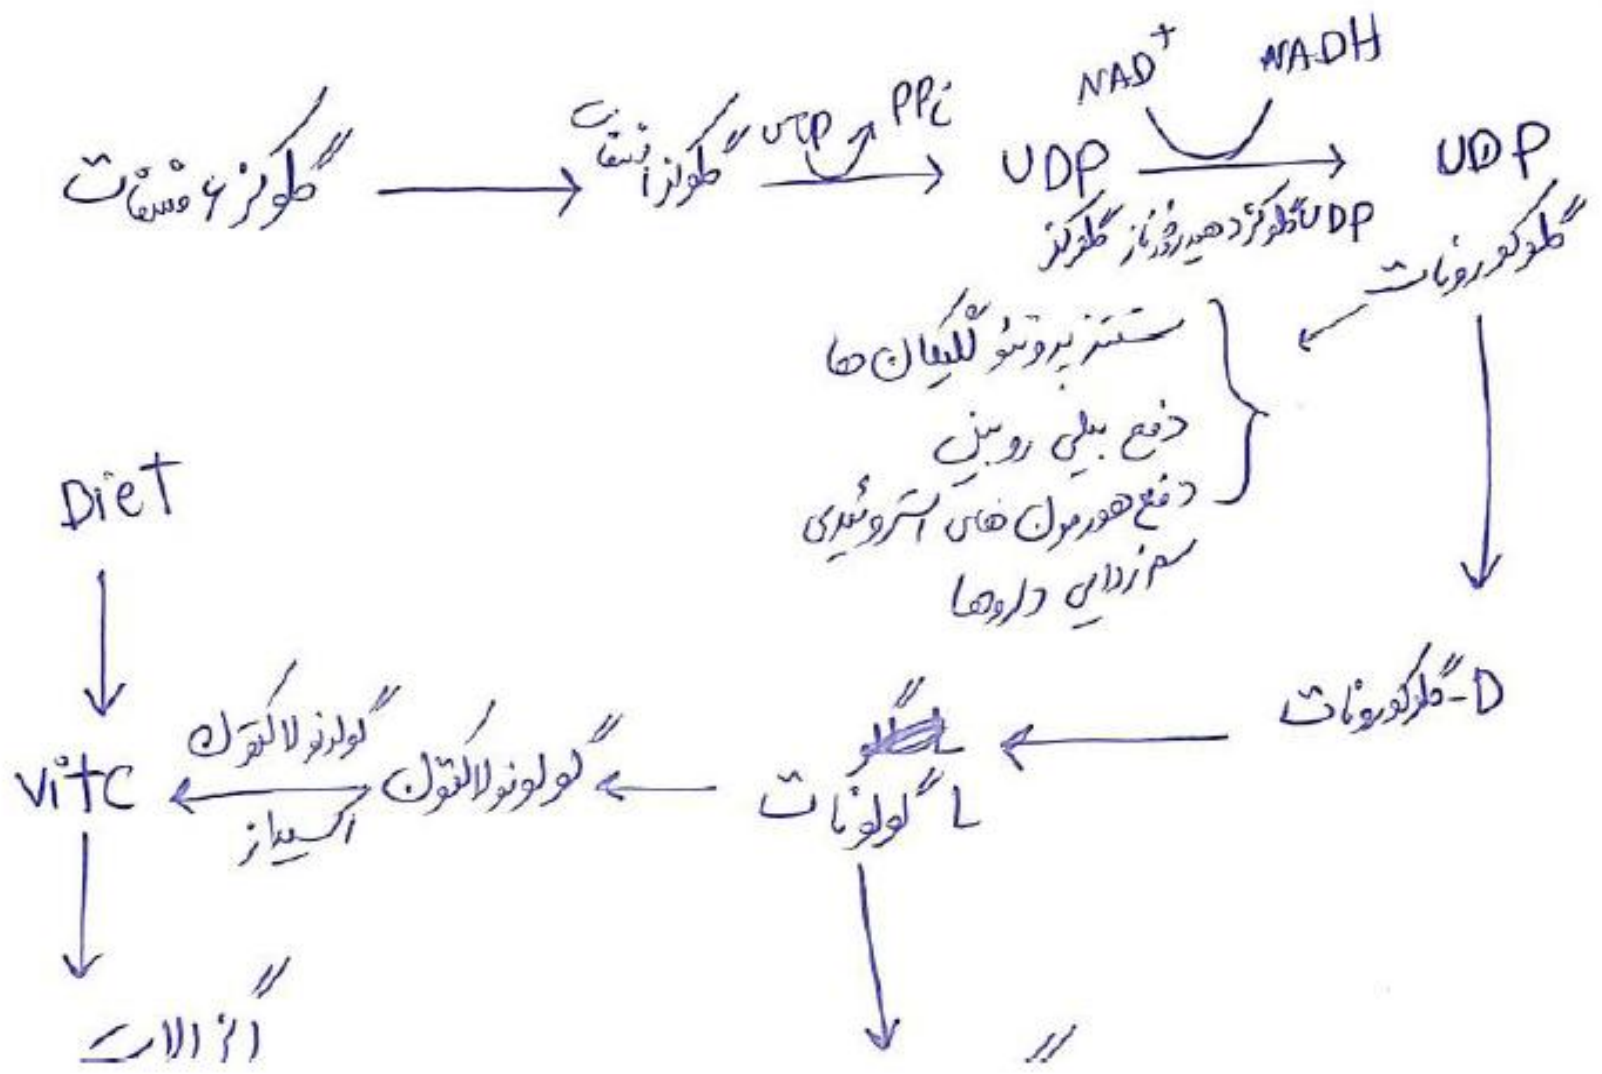 گلوکز ۶ فسفات
گلوکز ۱ فسفات
UTP
PPi
UDP
گلوکز
NAD+
NADH
UDP گلوکز دهیدروژناز
UDP
گلوکورونات
سنتز پروتئوگلیکان ها
دفع بیلی روبین
دفع هورمون های استروئیدی
سم زدایی داروها
D-گلوکورونات
L گولونات
گولونولاکتون
گولونولاکتون
اکسیداز
Diet
vitC
اگزالات